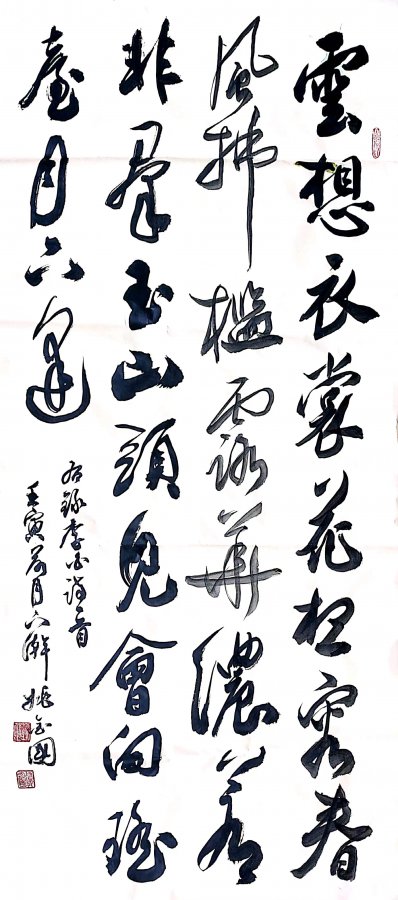 雲想衣裳花想容春
風拂檻露華濃若
非羣玉山頭見會向瑤
臺月下逢
右錄李白詩一首
壬寅荷月下澣 姚金國